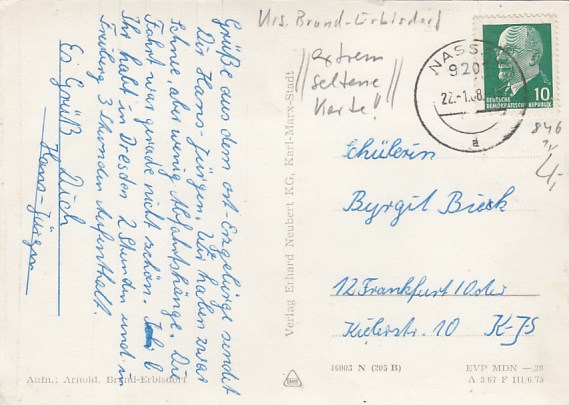 Grüße aus dem Ost-Erzgebirge sendet
Dir Hans-Jürgen. Wir haben zwar
Schnee aber wenig Abfahrtshänge. Die
Fahrt war gerade nicht schön.
Ihr habt in Dresden 2 Stunden und in
Freiberg 3 Stunden Aufenthalt.
Es Grüßt Dich
Hans-Jürgen
Krs. Brand-Erbisdorf
extrem
seltene
Karte!
NASSAU
9201
22.-1.68
a
10
DEUTSCHE
DEMOKRATISCHE REPUBLIK
846
4,-
Schülerin
Byrgit Bieck
12 Frankfurt/Oder
Kielerstr. 10 K-JS
Verlag Erhard Neubert KG, Karl-Marx-Stadt
Aufn.: Arnold, Brand-Erbisdorf
16003 N (205 B)
EVP MDN —.20
A 3/67 F III/6/75